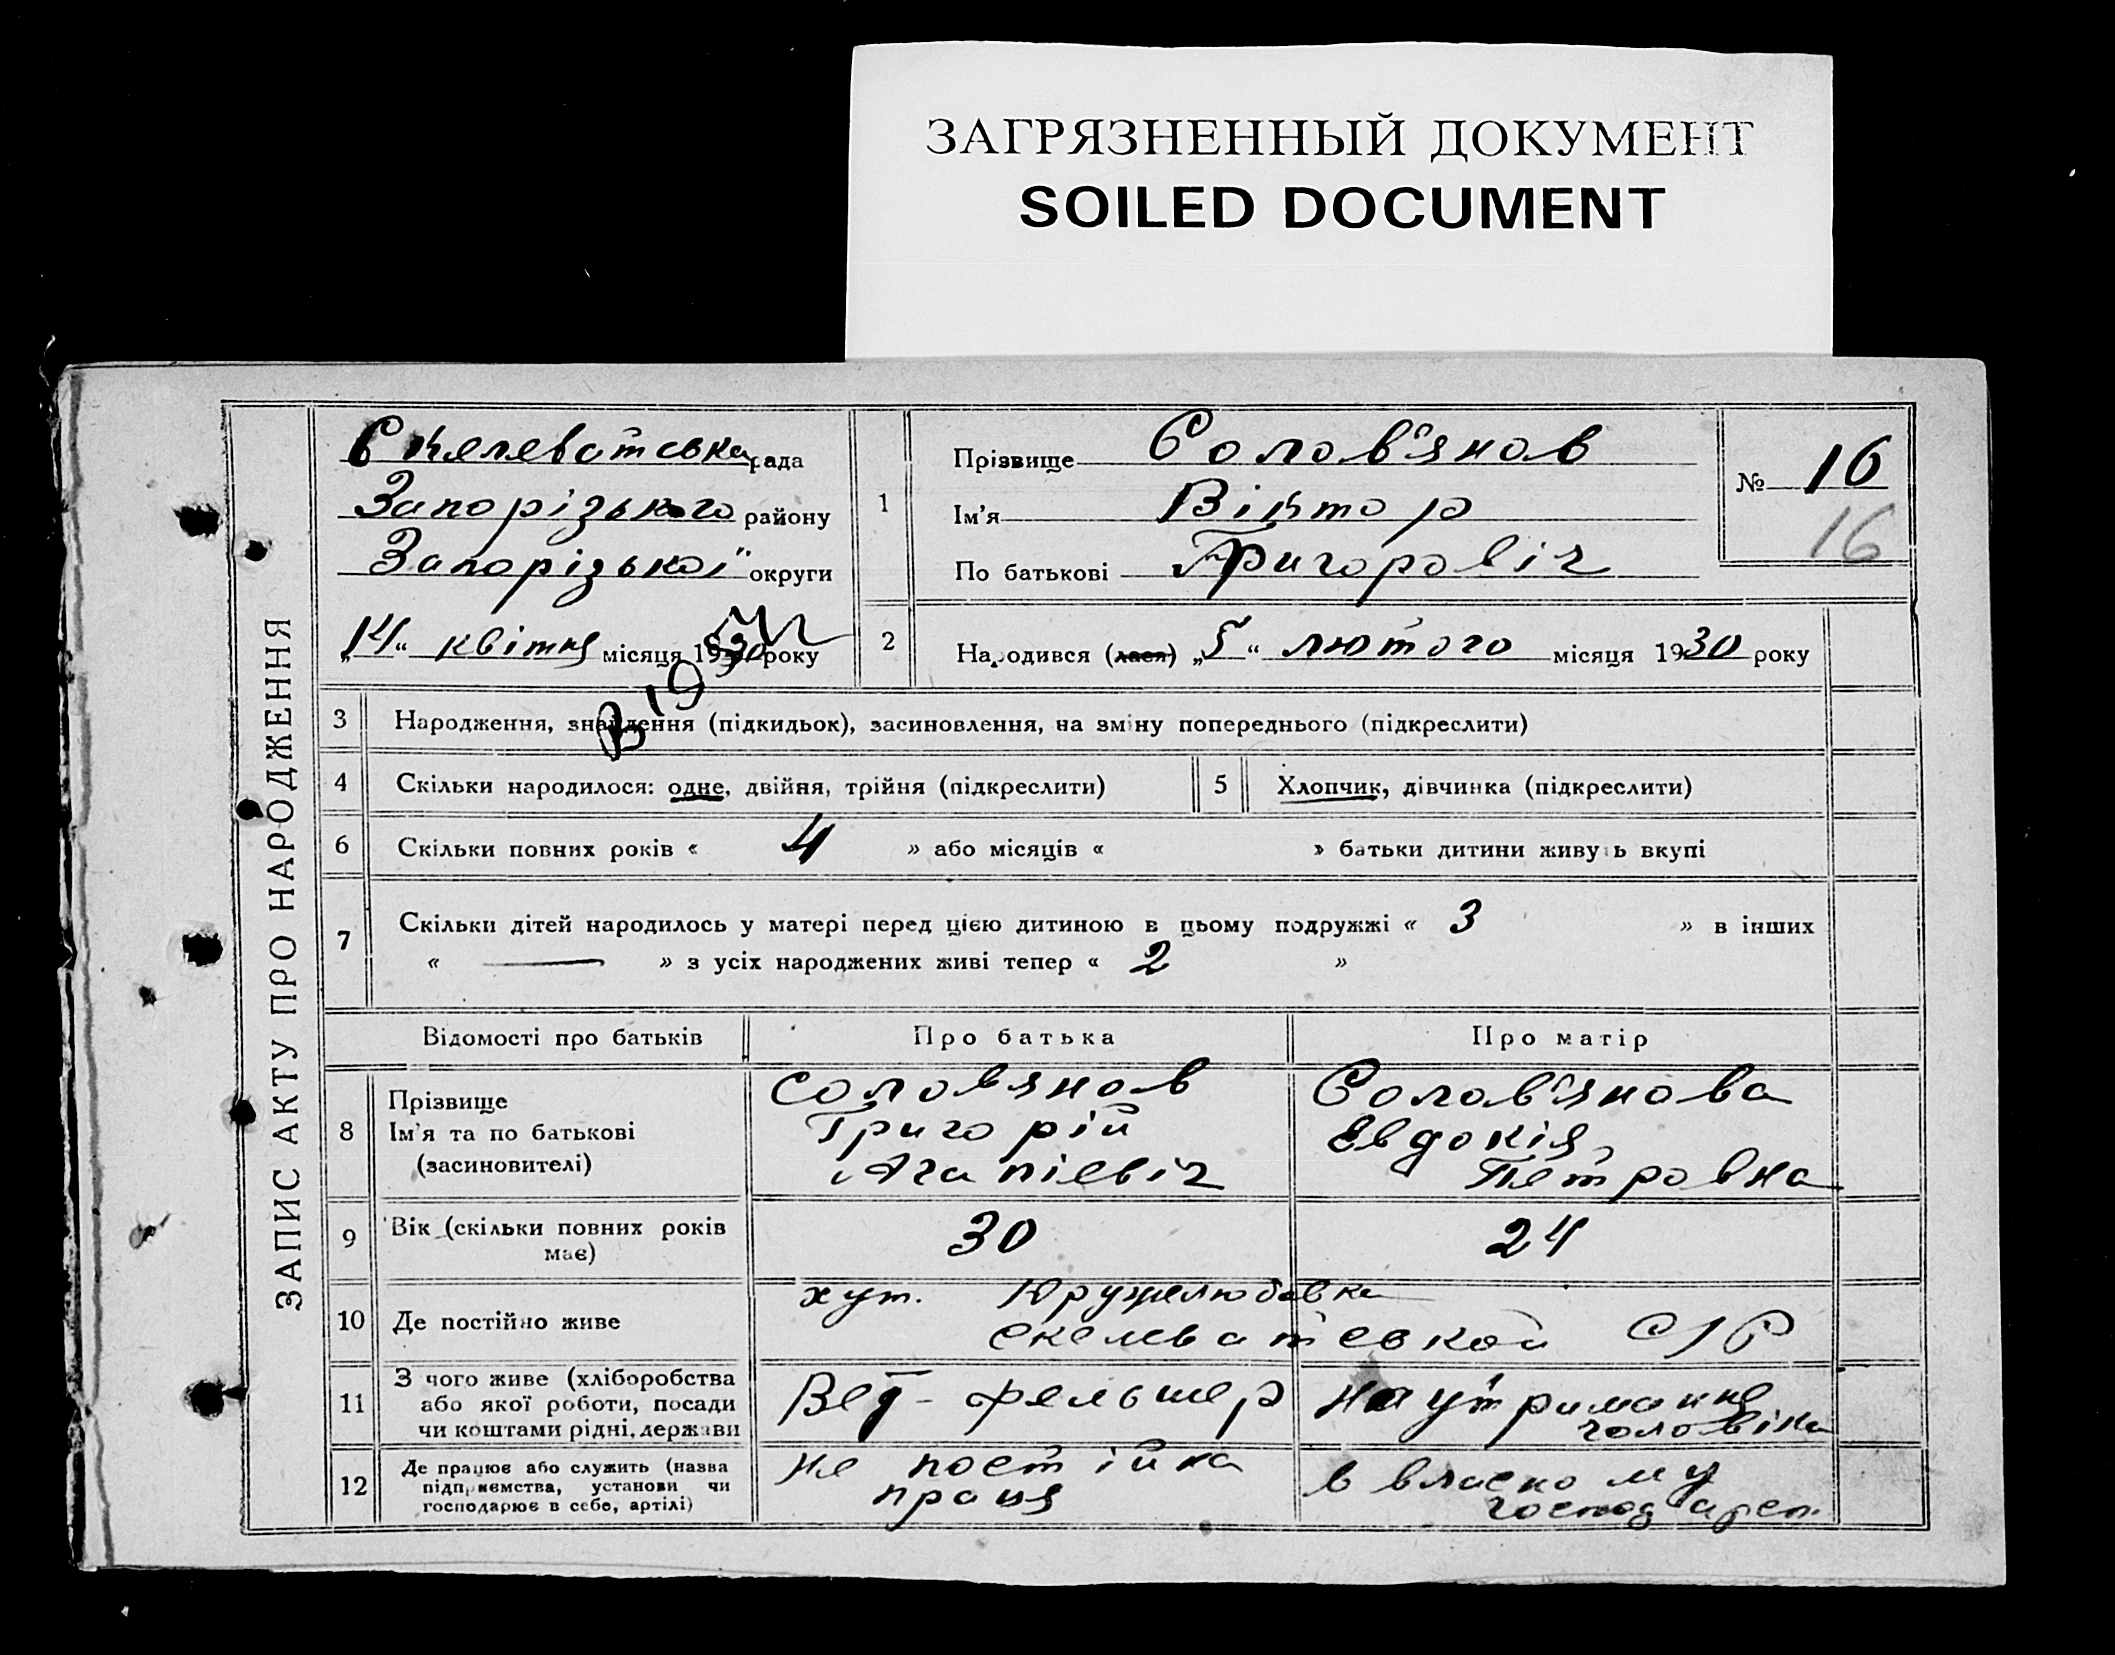 ЗАГРЯЗНЕННЫЙ ДОКУМЕНТ
SOILED DOCUMENT
ЗАПИС АКТУ ПРО НАРОДЖЕННЯ
Скелеватська рада
Запорізького району
Запорізької округи
„14“ квітня місяця 1930 року
1
Прізвище Солов'янов
Ім'я Віктор
По батькові Григоровіч
№ 16
16
2 Народився (лася) „5“ лютого місяця 1930 року
3 Народження, знайдення (підкидьок), засиновлення, на зміну попереднього (підкреслити)
4 Скільки народилося: одне, двійня, трійня (підкреслити) 5 Хлопчик, дівчинка (підкреслити)
6 Скільки повних років « 4 » або місяців « » батьки дитини живуть вкупі
7 Скільки дітей народилось у матері перед цією дитиною в цьому подружжі « 3 » в інших
« — » з усіх народжених живі тепер « 2 »
Відомості про батьків Про батька Про матір
8 Прізвище
Ім'я та по батькові
(засиновителі)
Солов'янов
Григорій
Агапіевіч
Солов'янова
Евдокія
Петровна
9 Вік (скільки повних років
має)
30 24
10 Де постійно живе
хут.
скелеватсвкой С/Р
11 З чого живе (хліборобства
або якої роботи, посади
чи коштами рідні, держави
Вет-фельшер
на утриманне
головіка
12 Де працює або служить (назва
підприємства, установи чи
господарює в себе, артілі)
не постійна
праця
в власному
господарст.